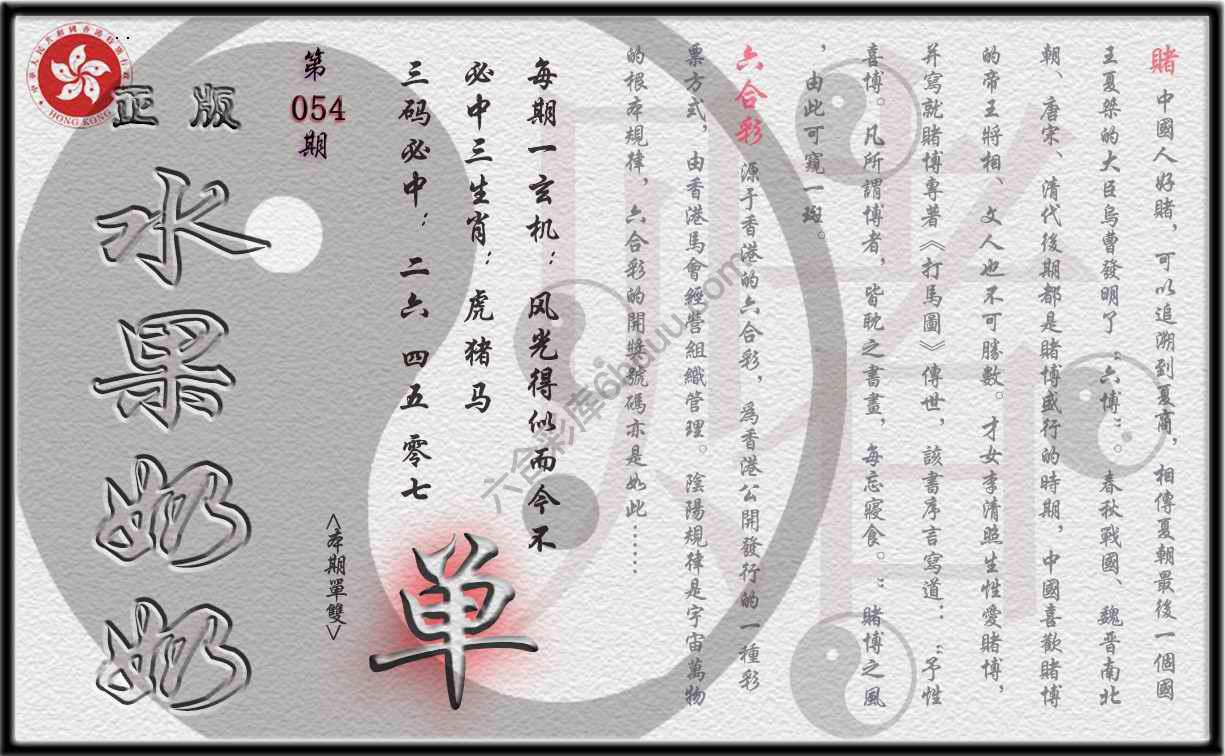 賭 中國人好賭，可以追溯到夏商，相傳夏朝最後一個國
王夏桀的大臣烏曹發明了“六博”。春秋戰國、魏晋南北
朝、唐宋、清代後期都是賭博盛行的時期，中國喜歡賭博
的帝王將相、文人也不可勝數。才女李清照生性愛賭博，
并寫就賭博專著《打馬圖》傳世，該書序言寫道：“予性
喜博。凡所謂博者，皆耽之書畫，每忘寢食。”賭博之風
，由此可窺一斑。
六合彩 源于香港的六合彩，爲香港公開發行的一種彩
票方式，由香港馬會經營組織管理。陰陽規律是宇宙萬物
的根本規律，六合彩的開獎號碼亦是如此……
每期一玄机：风光得似而今不
必中三生肖：虎猪马
三码必中：二六 四五 零七
单
<本期單雙>
第
054
期
正版
水果奶奶
HONG KONG
六合彩库6hduu.com
賭